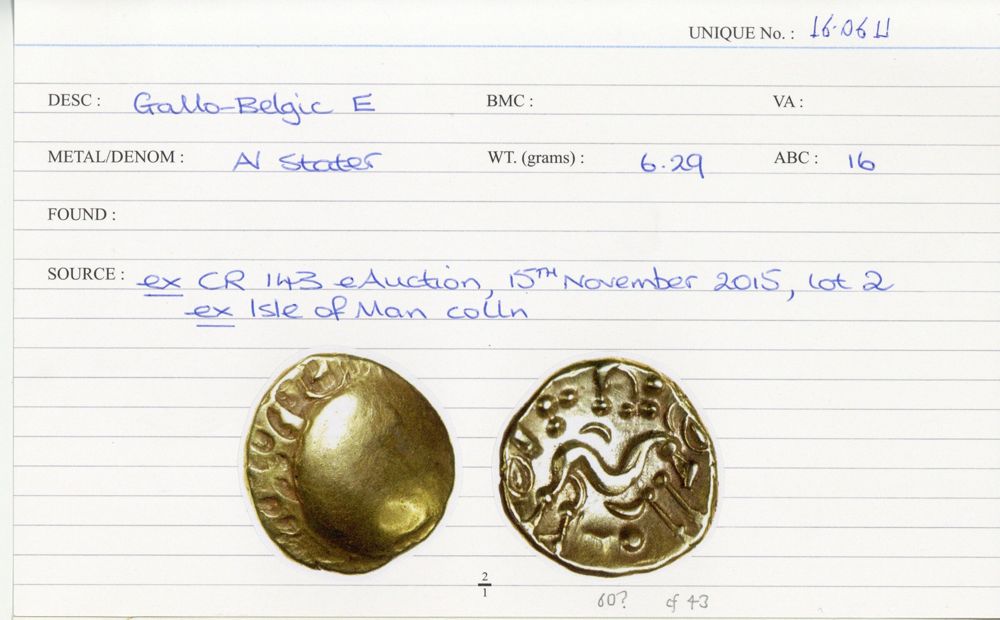 UNIQUE No. : 16.0611
DESC : Gallo-Belgic E BMC : VA :
METAL/DENOM : AV Stater WT. (grams) : 6.29 ABC : 16
FOUND :
SOURCE : ex CR 143 eAuction, 15TH November 2015, lot 2
ex Isle of Man colln
2
1
60? cf 43